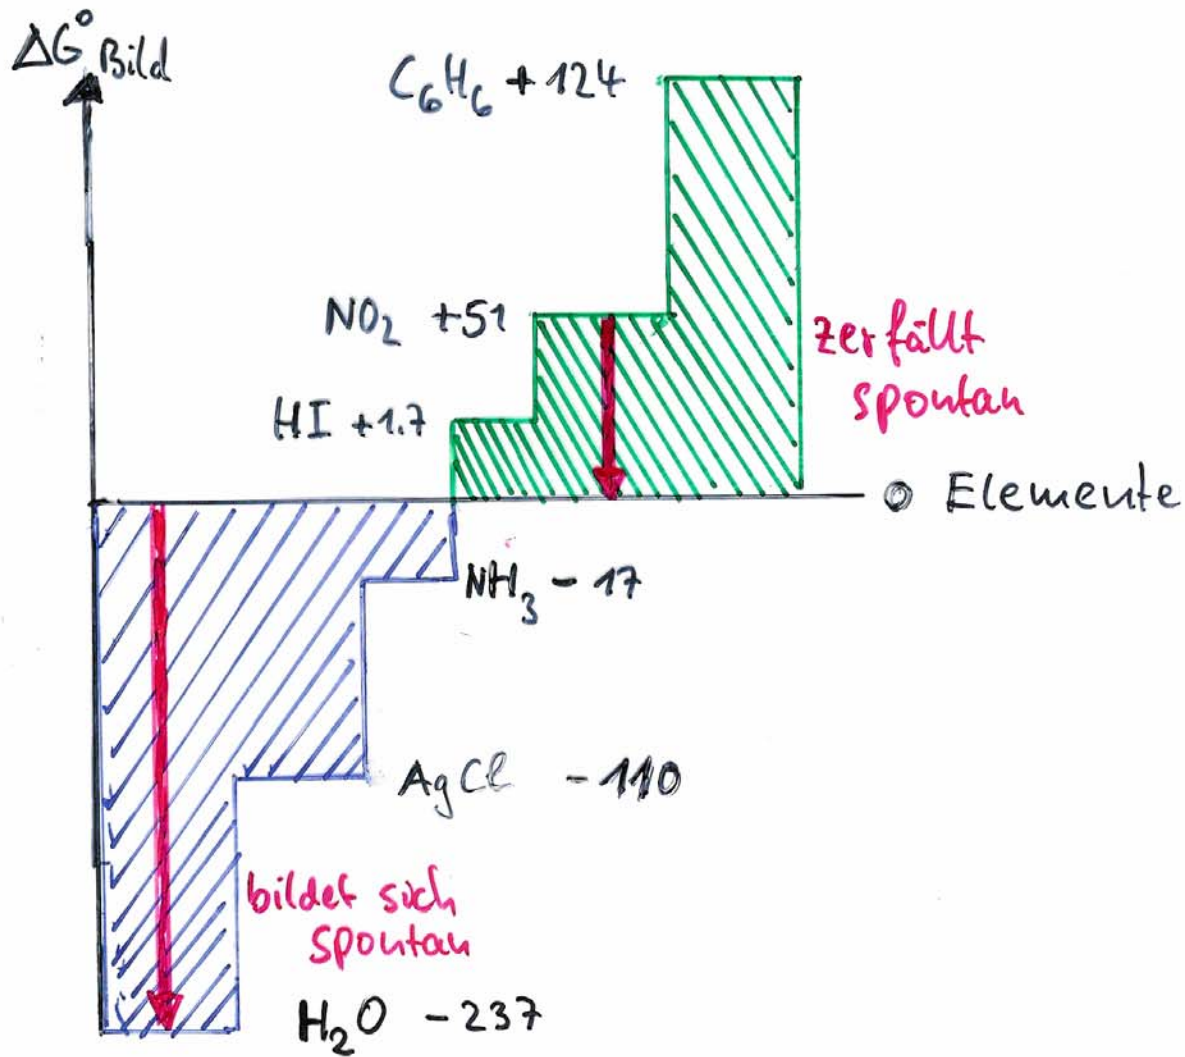 ΔG° Bild
C₆H₆ + 124
NO₂ +51
zerfällt
spontan
HI +1.7
0 Elemente
NH₃ - 17
AgCl - 110
bildet sich
spontan
H₂O - 237